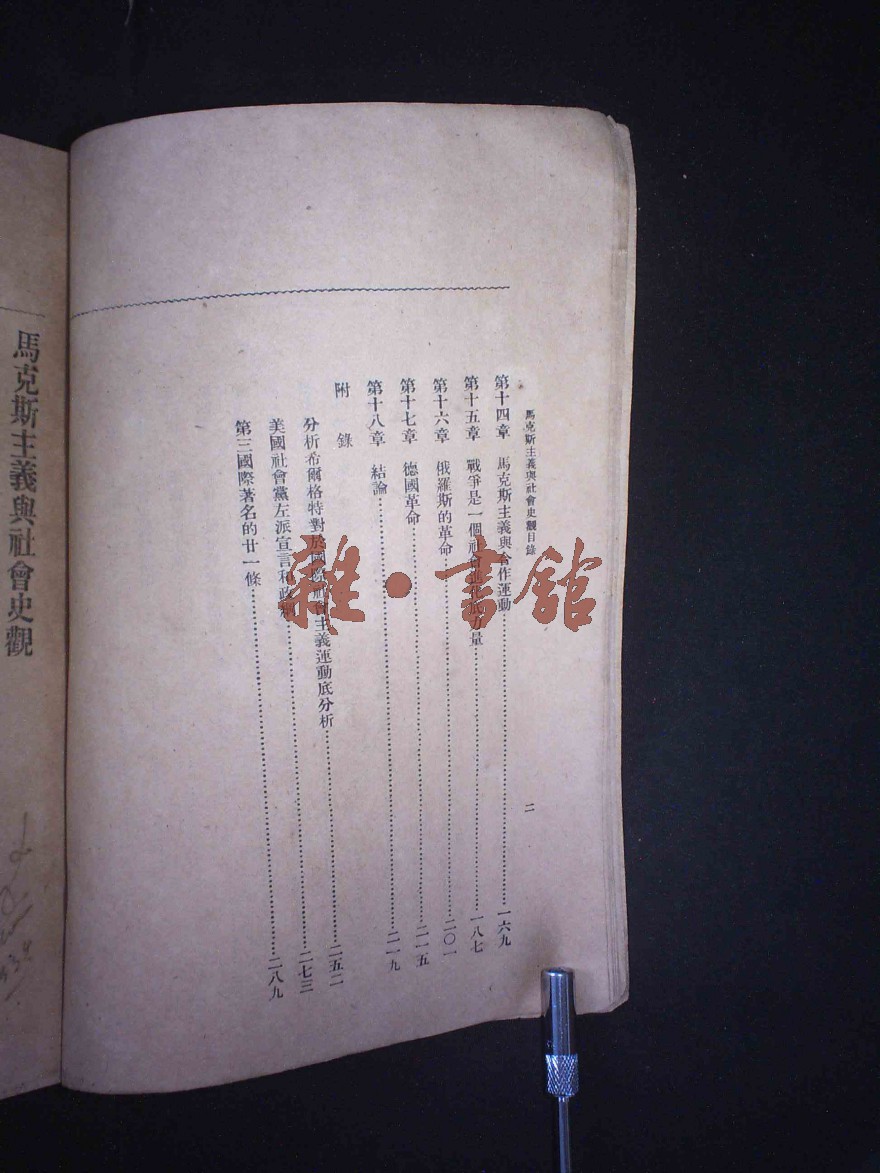 馬克斯主義與社會史觀目錄
二
第十四章 馬克斯主義與合作運動 一六九
第十五章 戰爭是一個社會進化底力量 一八七
第十六章 俄羅斯的革命 二〇一
第十七章 德國革命 二一五
第十八章 結論 二一九
附錄
分析希爾格特對於國際社會主義運動底分析 二五二
美國社會黨左派宣言和政綱 二七三
第三國際著名的廿一條 二八九
馬克斯主義與社會史觀
雜·書館